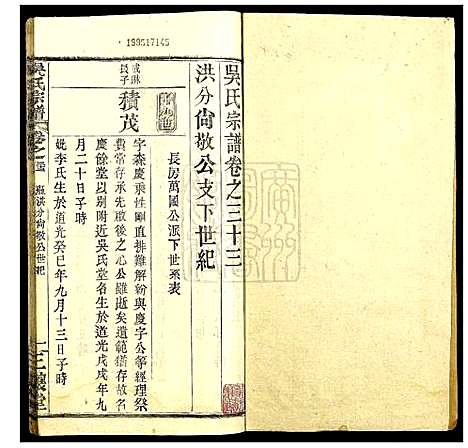 199517145
吳氏宗譜卷之三十三
洪分尙敬公支下世紀
長房萬國公派下世系表
成琳長子
積茂
字森慶秉性剛直排難解紛與慶字公等經理祭
費常存承先啟後之心公雖逝矣遺範猶存故名
慶餘堂以別附近吳氏堂名生於道光戊戌年九
月二十日子時
妣李氏生於道光癸巳年九月十三日子時
吳氏宗譜
卷之三
洪分尙敬公世紀